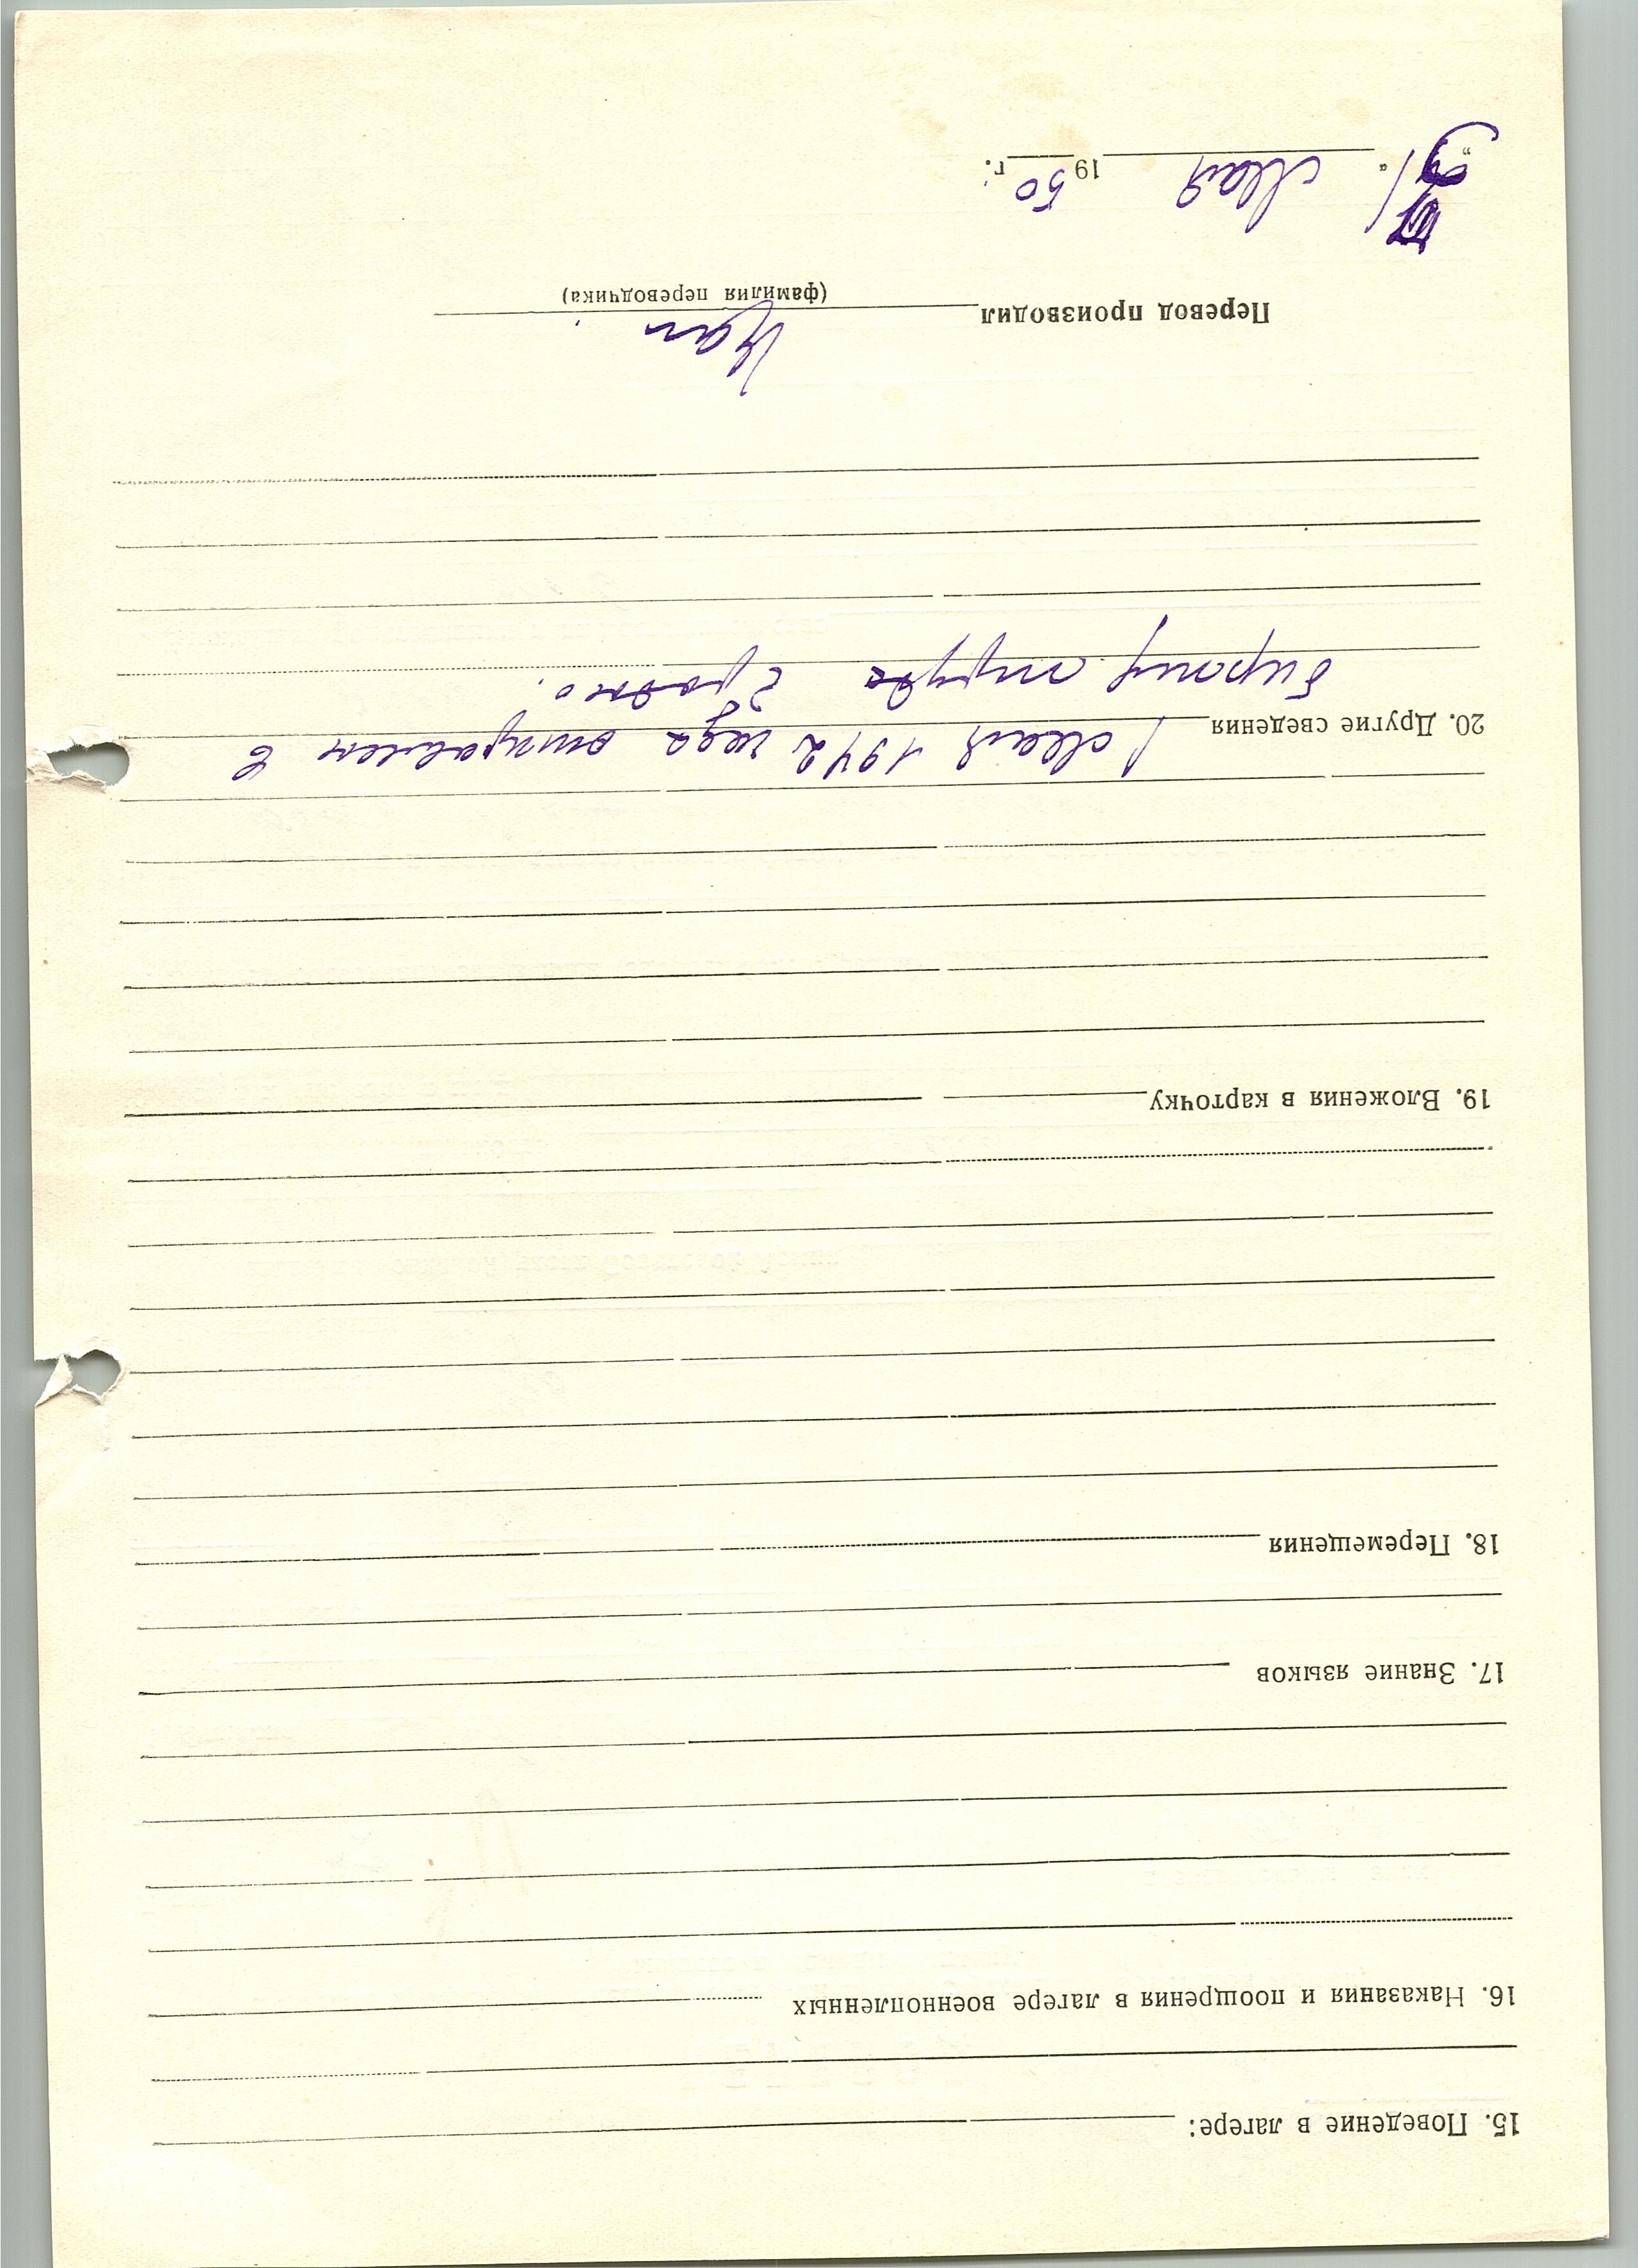 15. Поведение в лагере:
16. Наказания и поощрения в лагере военнопленных
17. Знание языков
18. Перемещения
19. Вложения в карточку
20. Другие сведения 1 мая 1942 года отправлен в
биржу труда Гродно.
Перевод производил
(фамилия переводчика)
мая 1950 г.